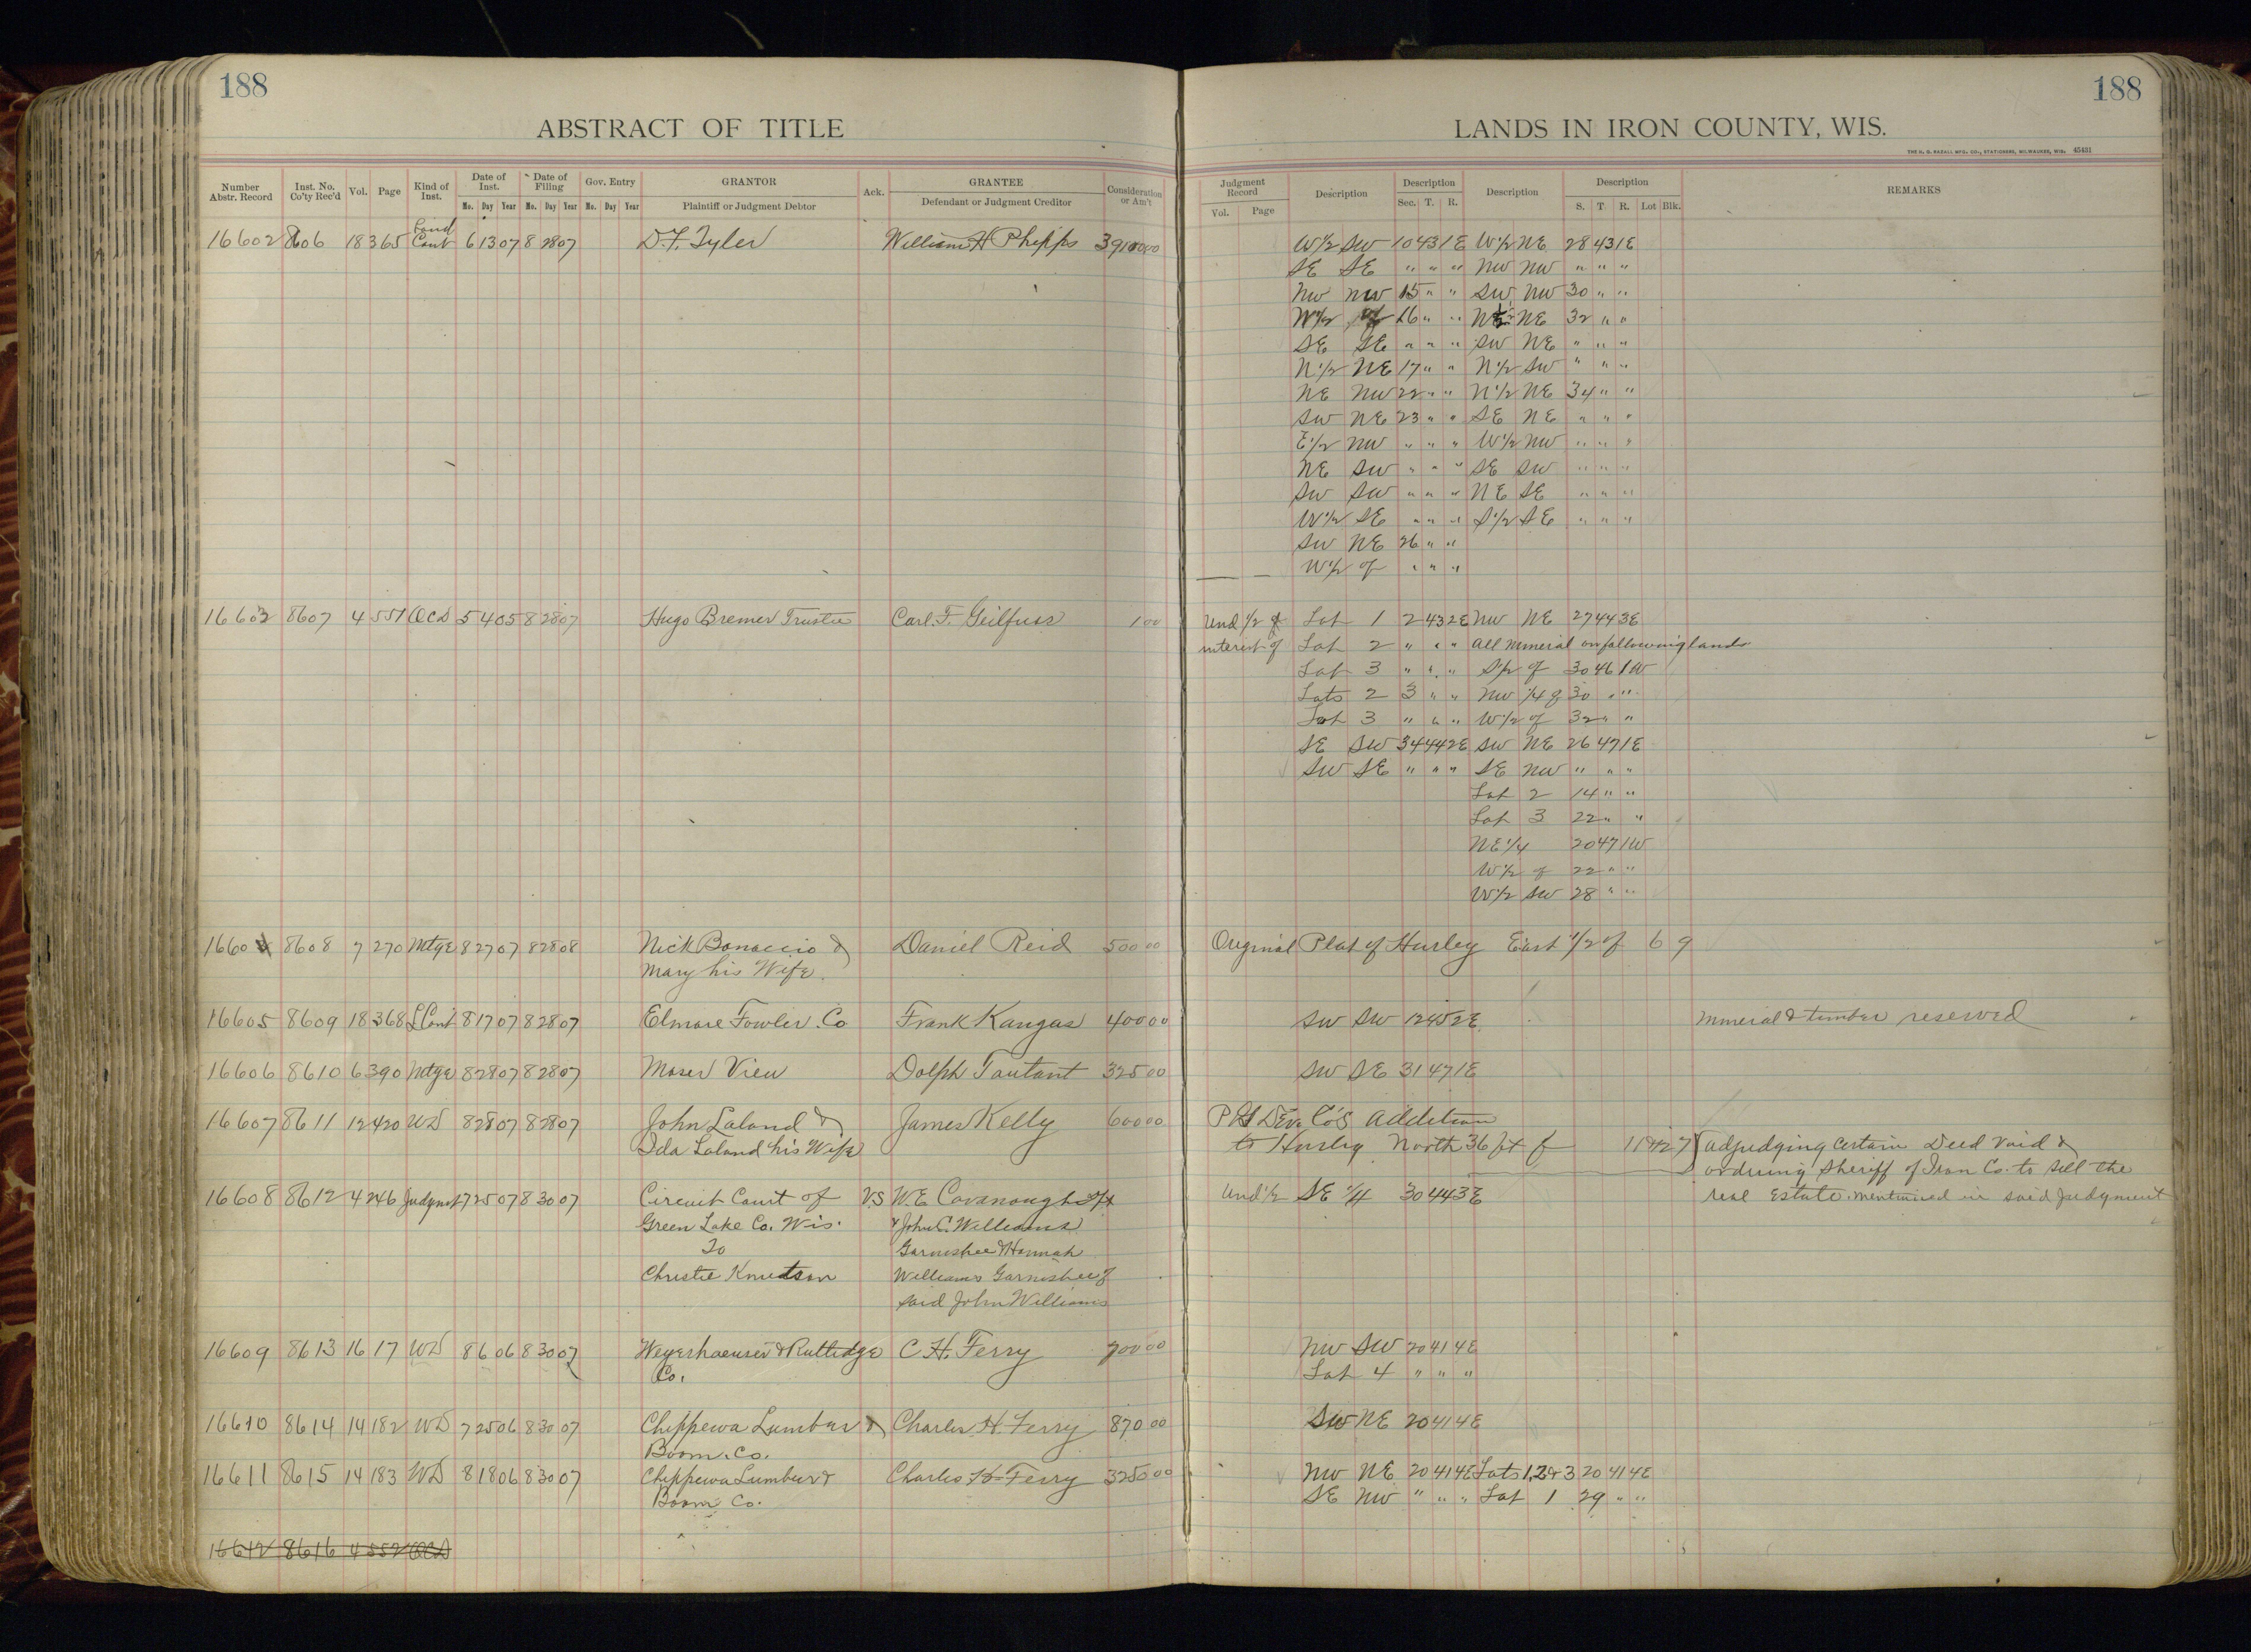 188
ABSTRACT OF TITLE
Number Abstr. Record Inst. No. Co'ty Rec'd Vol. Page Kind of Inst. Date of Inst. Mo. Day Year Date of Filing Mo. Day Year Gov. Entry Mo. Day Year GRANTOR Plaintiff or Judgment Debtor Ack. GRANTEE Defendant or Judgment Creditor Consideration or Am't
Land
16602 8606 18 365 Cont 6 13 07 8 28 07 D.F. Tyler William H Phipps
16603 8607 4 551 QCD 5 4 05 8 28 07 Hugo Bremer Trustee Carl. F. Geilfuss 1 00
1660 8608 7 270 Mtge 8 27 07 8 28 08 Nick Bonaccio & Daniel Reid 500 00
Mary his Wife.
16605 8609 18 368 L Cont 8 17 07 8 28 07 Elmore Fowler Co Frank Kangas 400 00
16606 8610 6 390 Mtge 8 28 07 8 28 07 Moses View Dolph Tautant 325 00
16607 8611 12 420 WD 8 28 07 8 28 07 John Laland & James Kelly 600 00
Ida Laland his Wife
16608 8612 4 246 Judgmt 7 25 07 8 30 07 Circuit Court of V.S W.E. Cavanough
Green Lake Co. Wis. & John C. Williams
To Garnishee & Hannah
Christie Knudtson Williams Garnishee of
said John Williams
16609 8613 16 17 WD 8 6 06 8 30 07 Weyerhaeuser & Rutledge C. H. Ferry 700 00
Co.
16610 8614 14 182 WD 7 25 06 8 30 07 Chippewa Lumber & Charles H. Ferry 870 00
Boom. Co.
16611 8615 14 183 WD 8 18 06 8 30 07 Chippewa Lumber & Charles H Ferry 3250 00
Boom Co.
16612 8616 4 552 QCD
188
LANDS IN IRON COUNTY, WIS.
THE H. G. RAZALL MFG. CO., STATIONERS, MILWAUKEE, WIS. 45431
Judgment Record Vol. Page Description Description Sec. T. R. Description Description S. T. R. Lot Blk. REMARKS
W 1/2 SW 10 43 1E W 1/2 NE 28 43 1E
SE SE " " " NW NW " " "
NW NW 15 " " SW NW 30 " "
W 1/2 of 16 " " N 1/2 NE 32 " "
SE SE " " " SW NE " " "
N 1/2 NE 17 " " N 1/2 SW " " "
NE NW 22 " " N 1/2 NE 34 " "
SW NE 23 " " SE NE " " "
E 1/2 NW " " " W 1/2 NW " " "
NE SW " " " SE SW " " "
SW SW " " " NE SE " " "
W 1/2 SE " " " S 1/2 SE " " "
SW NE 26 " "
W 1/2 of " " "
Und 1/2 of Lot 1 2 43 2E NW NE 27 44 3E
interest of Lot 2 " " " All Mineral on following lands
Lot 3 " " " S 1/2 of 30 46 1W
Lots 2 3 " " NW 1/4 of 30 " "
Lot 3 " " " W 1/2 of 32 " "
SE SW 34 44 2E SW NE 26 47 1E
SW SE " " " SE NW " " "
Lot 2 14 " "
Lot 3 22 " "
NE 1/4 20 47 1W
W 1/2 of 22 " "
W 1/2 SW 28 " "
Original Plat of Hurley East 1/2 of 6 9
SW SW 12 45 2E Mineral & timber reserved
SW SE 31 47 1E
Dev. Co's Addition
to Hurley North 36 ft of adjudging certain Deed void &
ordering Sheriff of Iron Co. to sell the
Und 1/2 SE 1/4 30 44 3E real Estate mentioned in said Judgment
NW SW 20 41 4E
Lot 4 " " "
SW NE 20 41 4E
NW NE 20 41 4E Lots 1, 2 & 3 20 41 4E
SE NW " " " Lot 1 29 " "